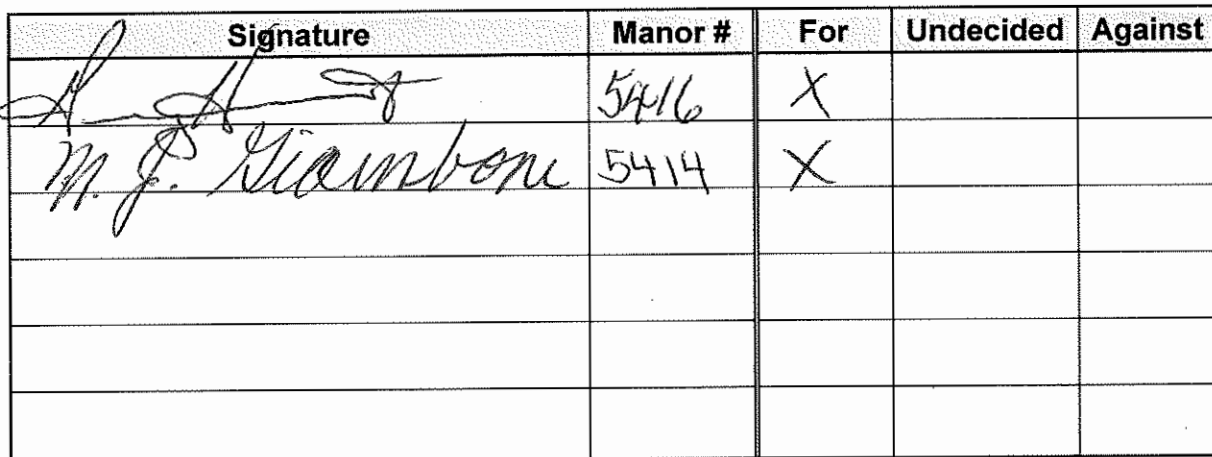 Signature Manor # For Undecided Against
5416 X
M. J. Giambone 5414 X